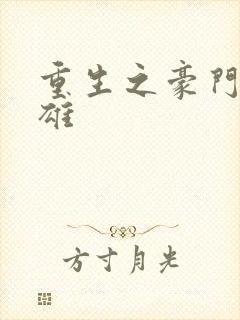 重生之豪門
雄
方寸月光